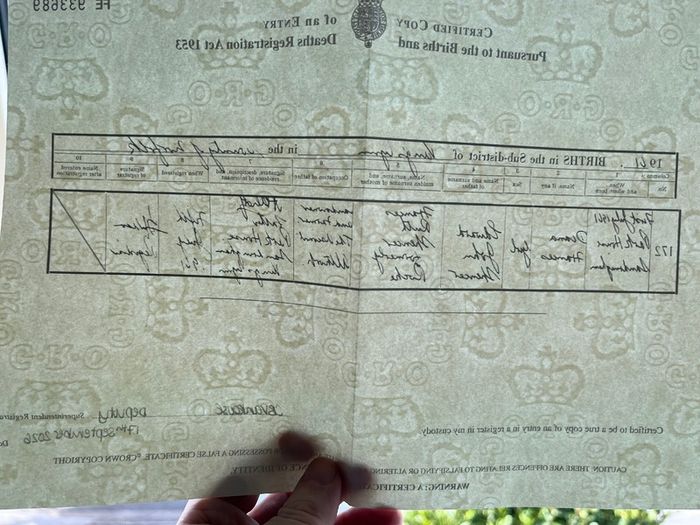 FE 933689
CERTIFIED COPY of an ENTRY
Pursuant to the Births and Deaths Registration Act 1953
1961. BIRTHS in the Sub-district of King's Lynn in the County of Norfolk
Columns:- 1 2 3 4 5 6 7 8 9 10
No. When and where born Name, if any Sex Name and surname of father Name, surname, and maiden surname of mother Occupation of father Signature, description, and residence of informant When registered Signature of registrar Name entered after registration
172
First July 1961
Park House
Sandringham
Diana
Frances
Girl
Edward
John
Spencer
Frances
Ruth
Spencer
formerly
Roche
Viscount
Althorp
Father
Park House
Sandringham
King's Lynn
July
Certified to be a true copy of an entry in a register in my custody.
Deputy Superintendent Registrar
17th September 2026
CAUTION: THERE ARE OFFENCES RELATING TO FALSIFYING OR ALTERING
POSSESSING A FALSE CERTIFICATE. ©CROWN COPYRIGHT
WARNING: A CERTIFICATE
OF IDENTITY.
G·R·O